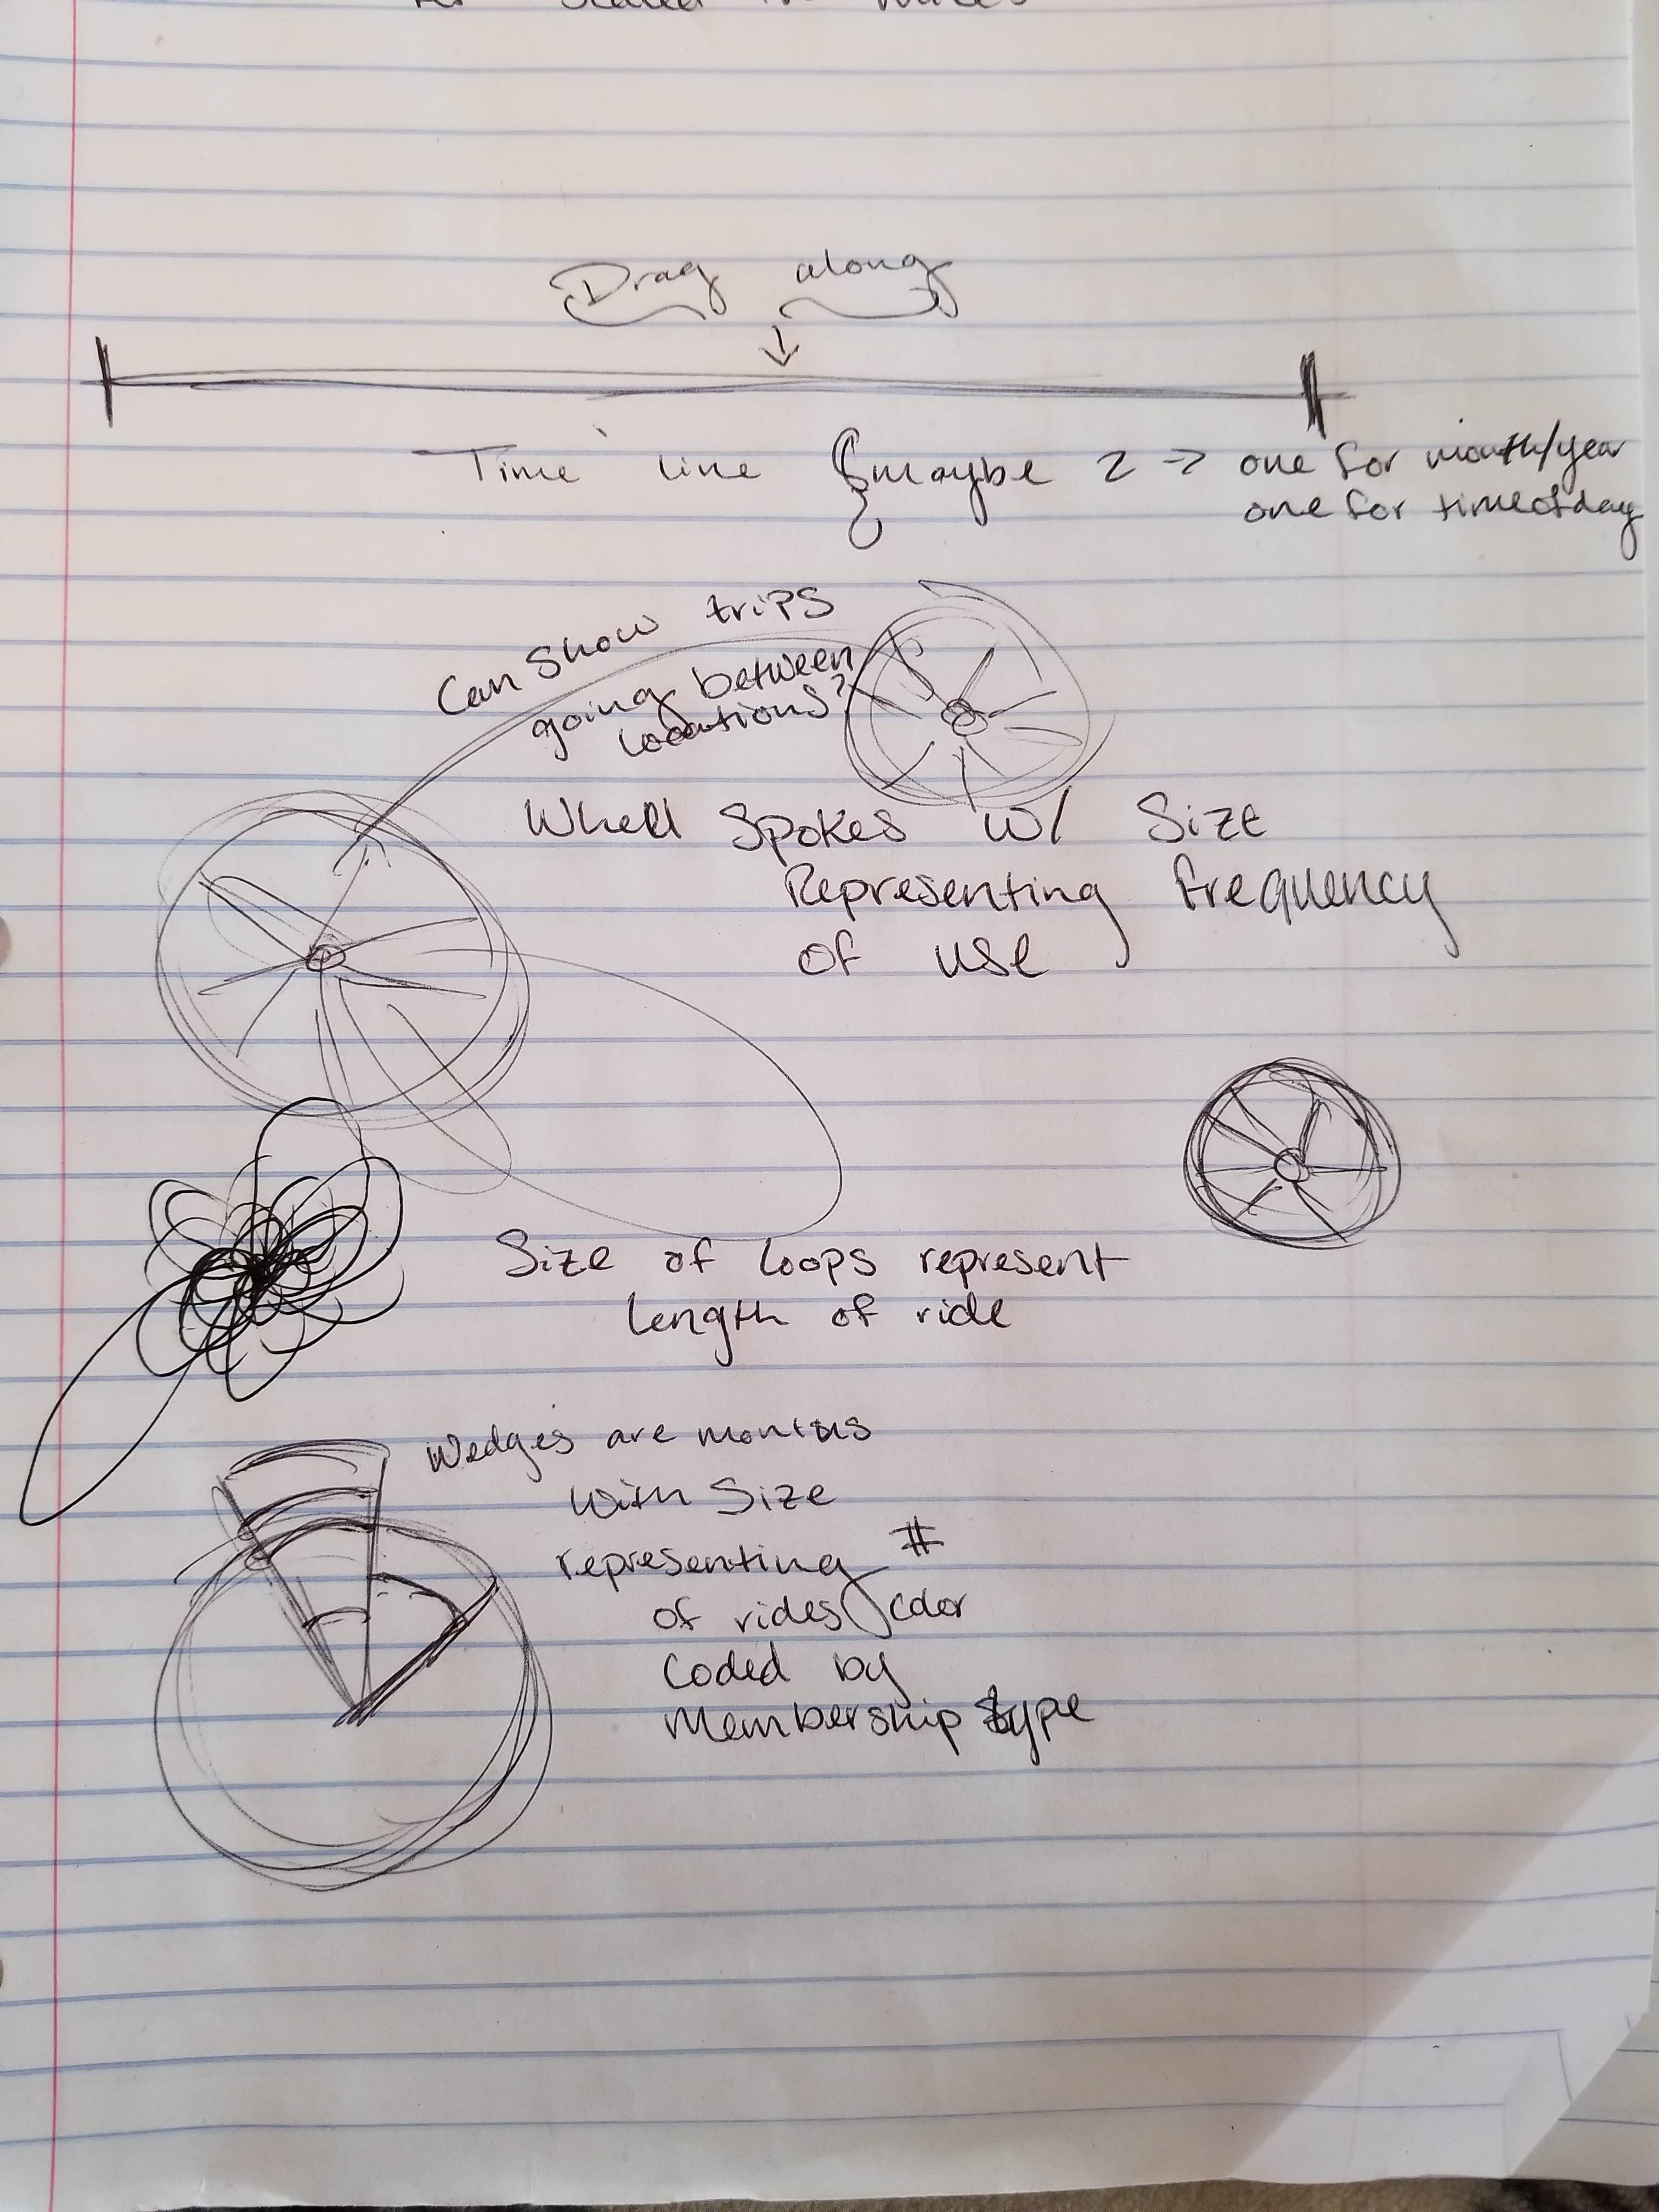 Drag along
Time line {maybe 2 -> one for month/year
one for timeofday
Can Show trips
going between
locations?
Wheel Spokes w/ Size
Representing frequency
of use
Size of loops represent
length of ride
Wedges are months
with Size
representing #
of rides color
Coded by
Membership type